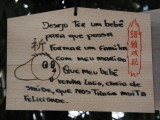 Desejo ter um bebê
para que possa
formar uma família
com meu marido.
祈
Que meu bebê
venha logo, cheio de
saúde, que nos traga muita
felicidade.
諸願成就